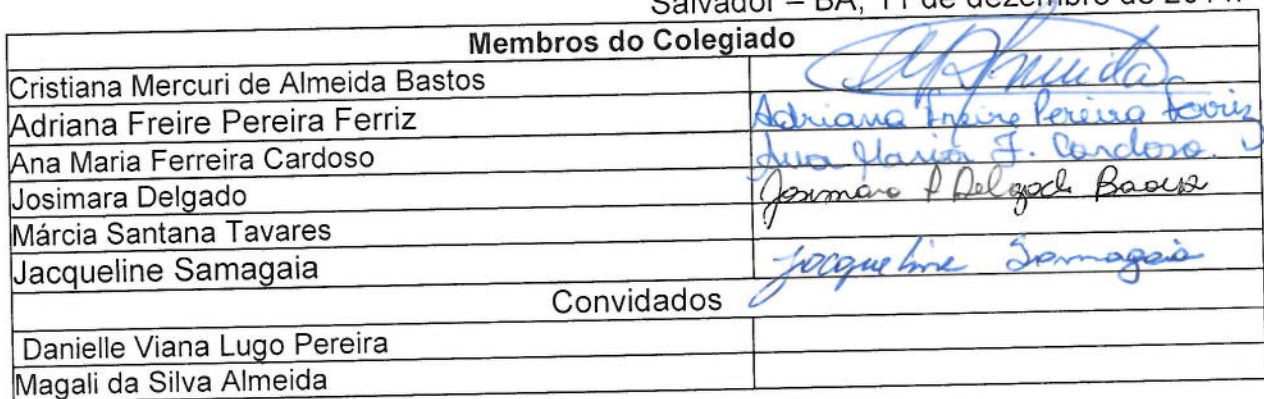 Salvador – BA, 11 de dezembro de 2014.
Membros do Colegiado
Cristiana Mercuri de Almeida Bastos Almeida
Adriana Freire Pereira Ferriz Adriana Freire Pereira Ferriz
Ana Maria Ferreira Cardoso Ana Maria F. Cardoso.
Josimara Delgado Josimara Delgado
Márcia Santana Tavares
Jacqueline Samagaia Jacqueline Samagaia
Convidados
Danielle Viana Lugo Pereira
Magali da Silva Almeida